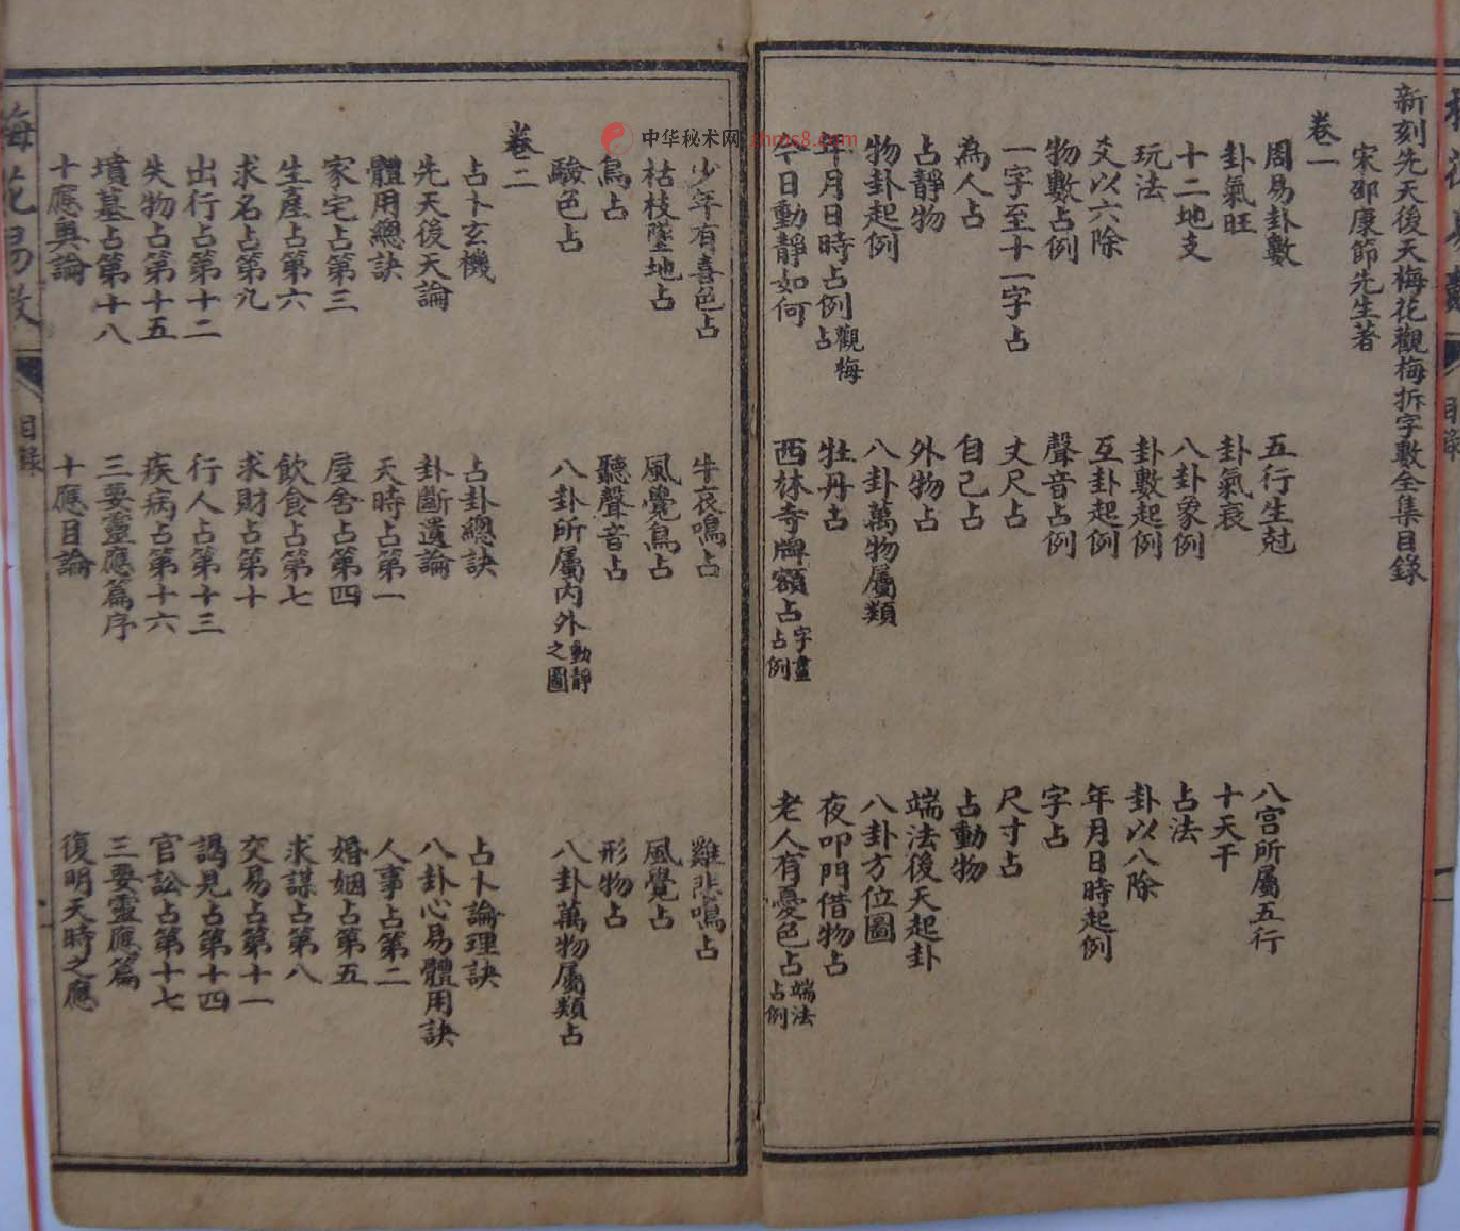 新刻先天後天梅花觀梅拆字數全集目錄
宋邵康節先生著
卷一
周易卦數 五行生尅 八宮所屬五行
卦氣旺 卦氣衰 十天干
十二地支 八卦象例 占法
玩法 卦數起例 卦以八除
爻以六除 互卦起例 年月日時起例
物數占例 聲音占例 字占
一字至十一字占 丈尺占 尺寸占
為人占 自己占 占動物
占靜物 外物占 端法後天起卦
物卦起例 八卦萬物屬類 八卦方位圖
年月日時占例觀梅占 牡丹占 夜叩門借物占
今日動靜如何 西林寺牌額占字畫占例 老人有憂色占端法占例
少年有喜色占 牛哀鳴占 雞悲鳴占
枯枝墜地占 風覺鳥占 風覺占
鳥占 聽聲音占 形物占
驗色占 八卦所屬內外動靜之圖 八卦萬物屬類占
卷二
占卜玄機 占卦總訣 占卜論理訣
先天後天論 卦斷遺論 八卦心易體用訣
體用總訣 天時占第一 人事占第二
家宅占第三 屋舍占第四 婚姻占第五
生產占第六 飲食占第七 求謀占第八
求名占第九 求財占第十 交易占第十一
出行占第十二 行人占第十三 謁見占第十四
失物占第十五 疾病占第十六 官訟占第十七
墳墓占第十八 三要靈應篇序 三要靈應篇
十應奧論 十應目論 復明天時之應
梅花易數
目錄
目錄
中华秘术网 zhms8.com